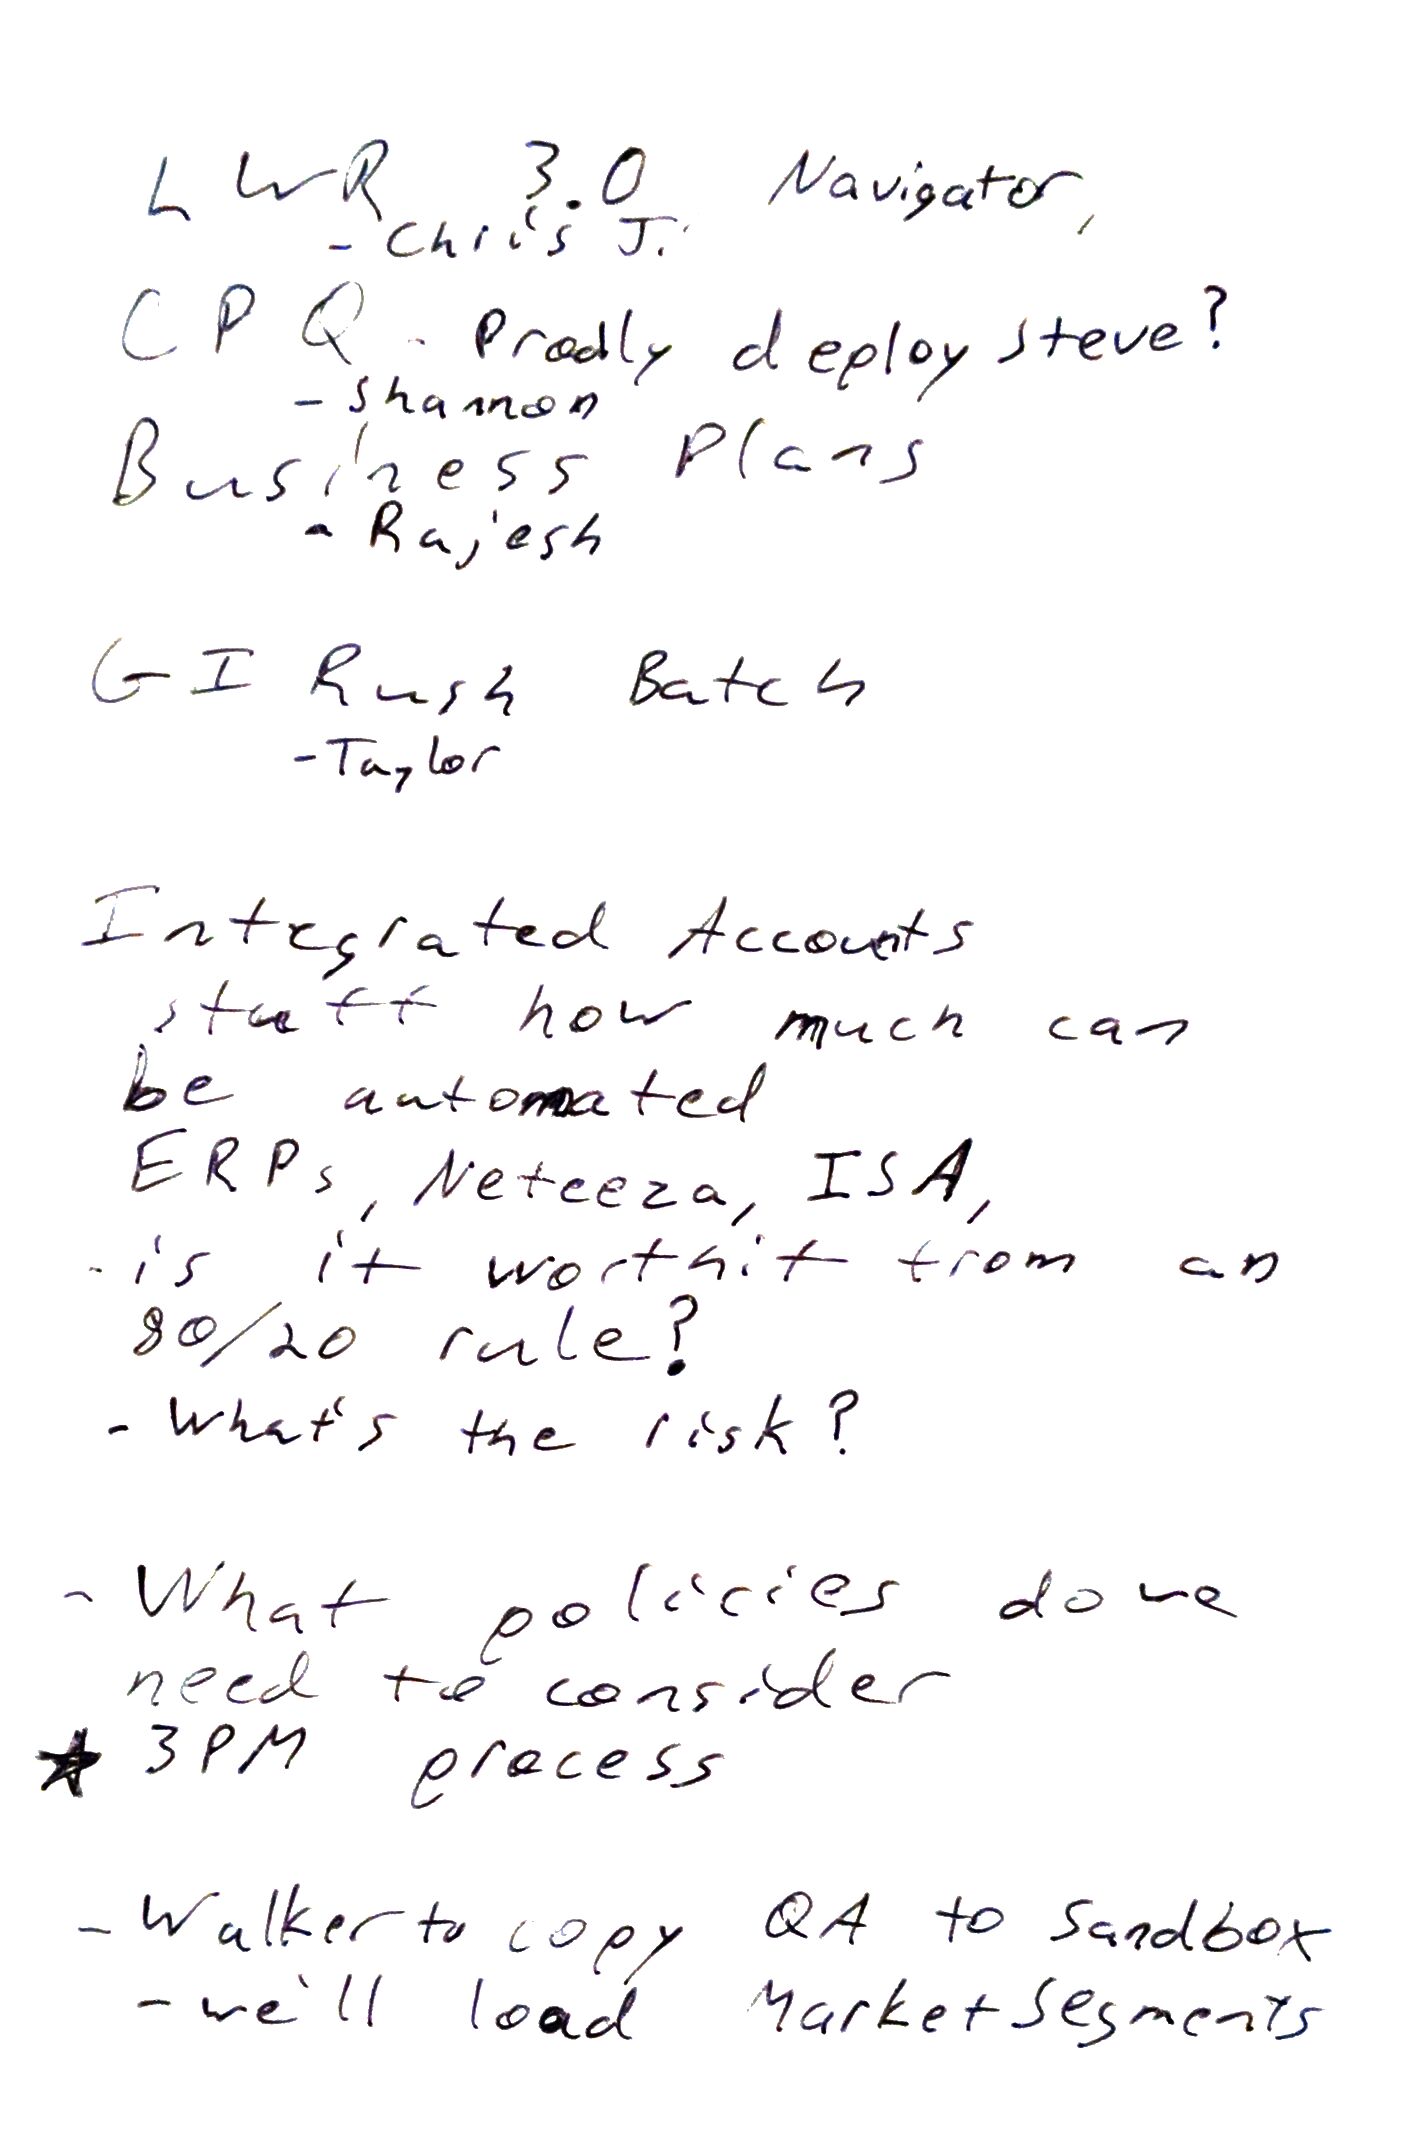 LWR 3.0 Navigator,
- Chris J.
CPQ - Prodly deploy steve?
- Shannon
Business Plans
- Rajesh
GI Rush Batch
- Taylor
Integrated Accounts
stuff how much can
be automated
ERPs, Neteeza, ISA,
- is it worthit from an
80/20 rule?
- What's the risk?
- What policies do we
need to consider
★ 3PM process
- Walker to copy QA to Sandbox
- we'll load Market Segments